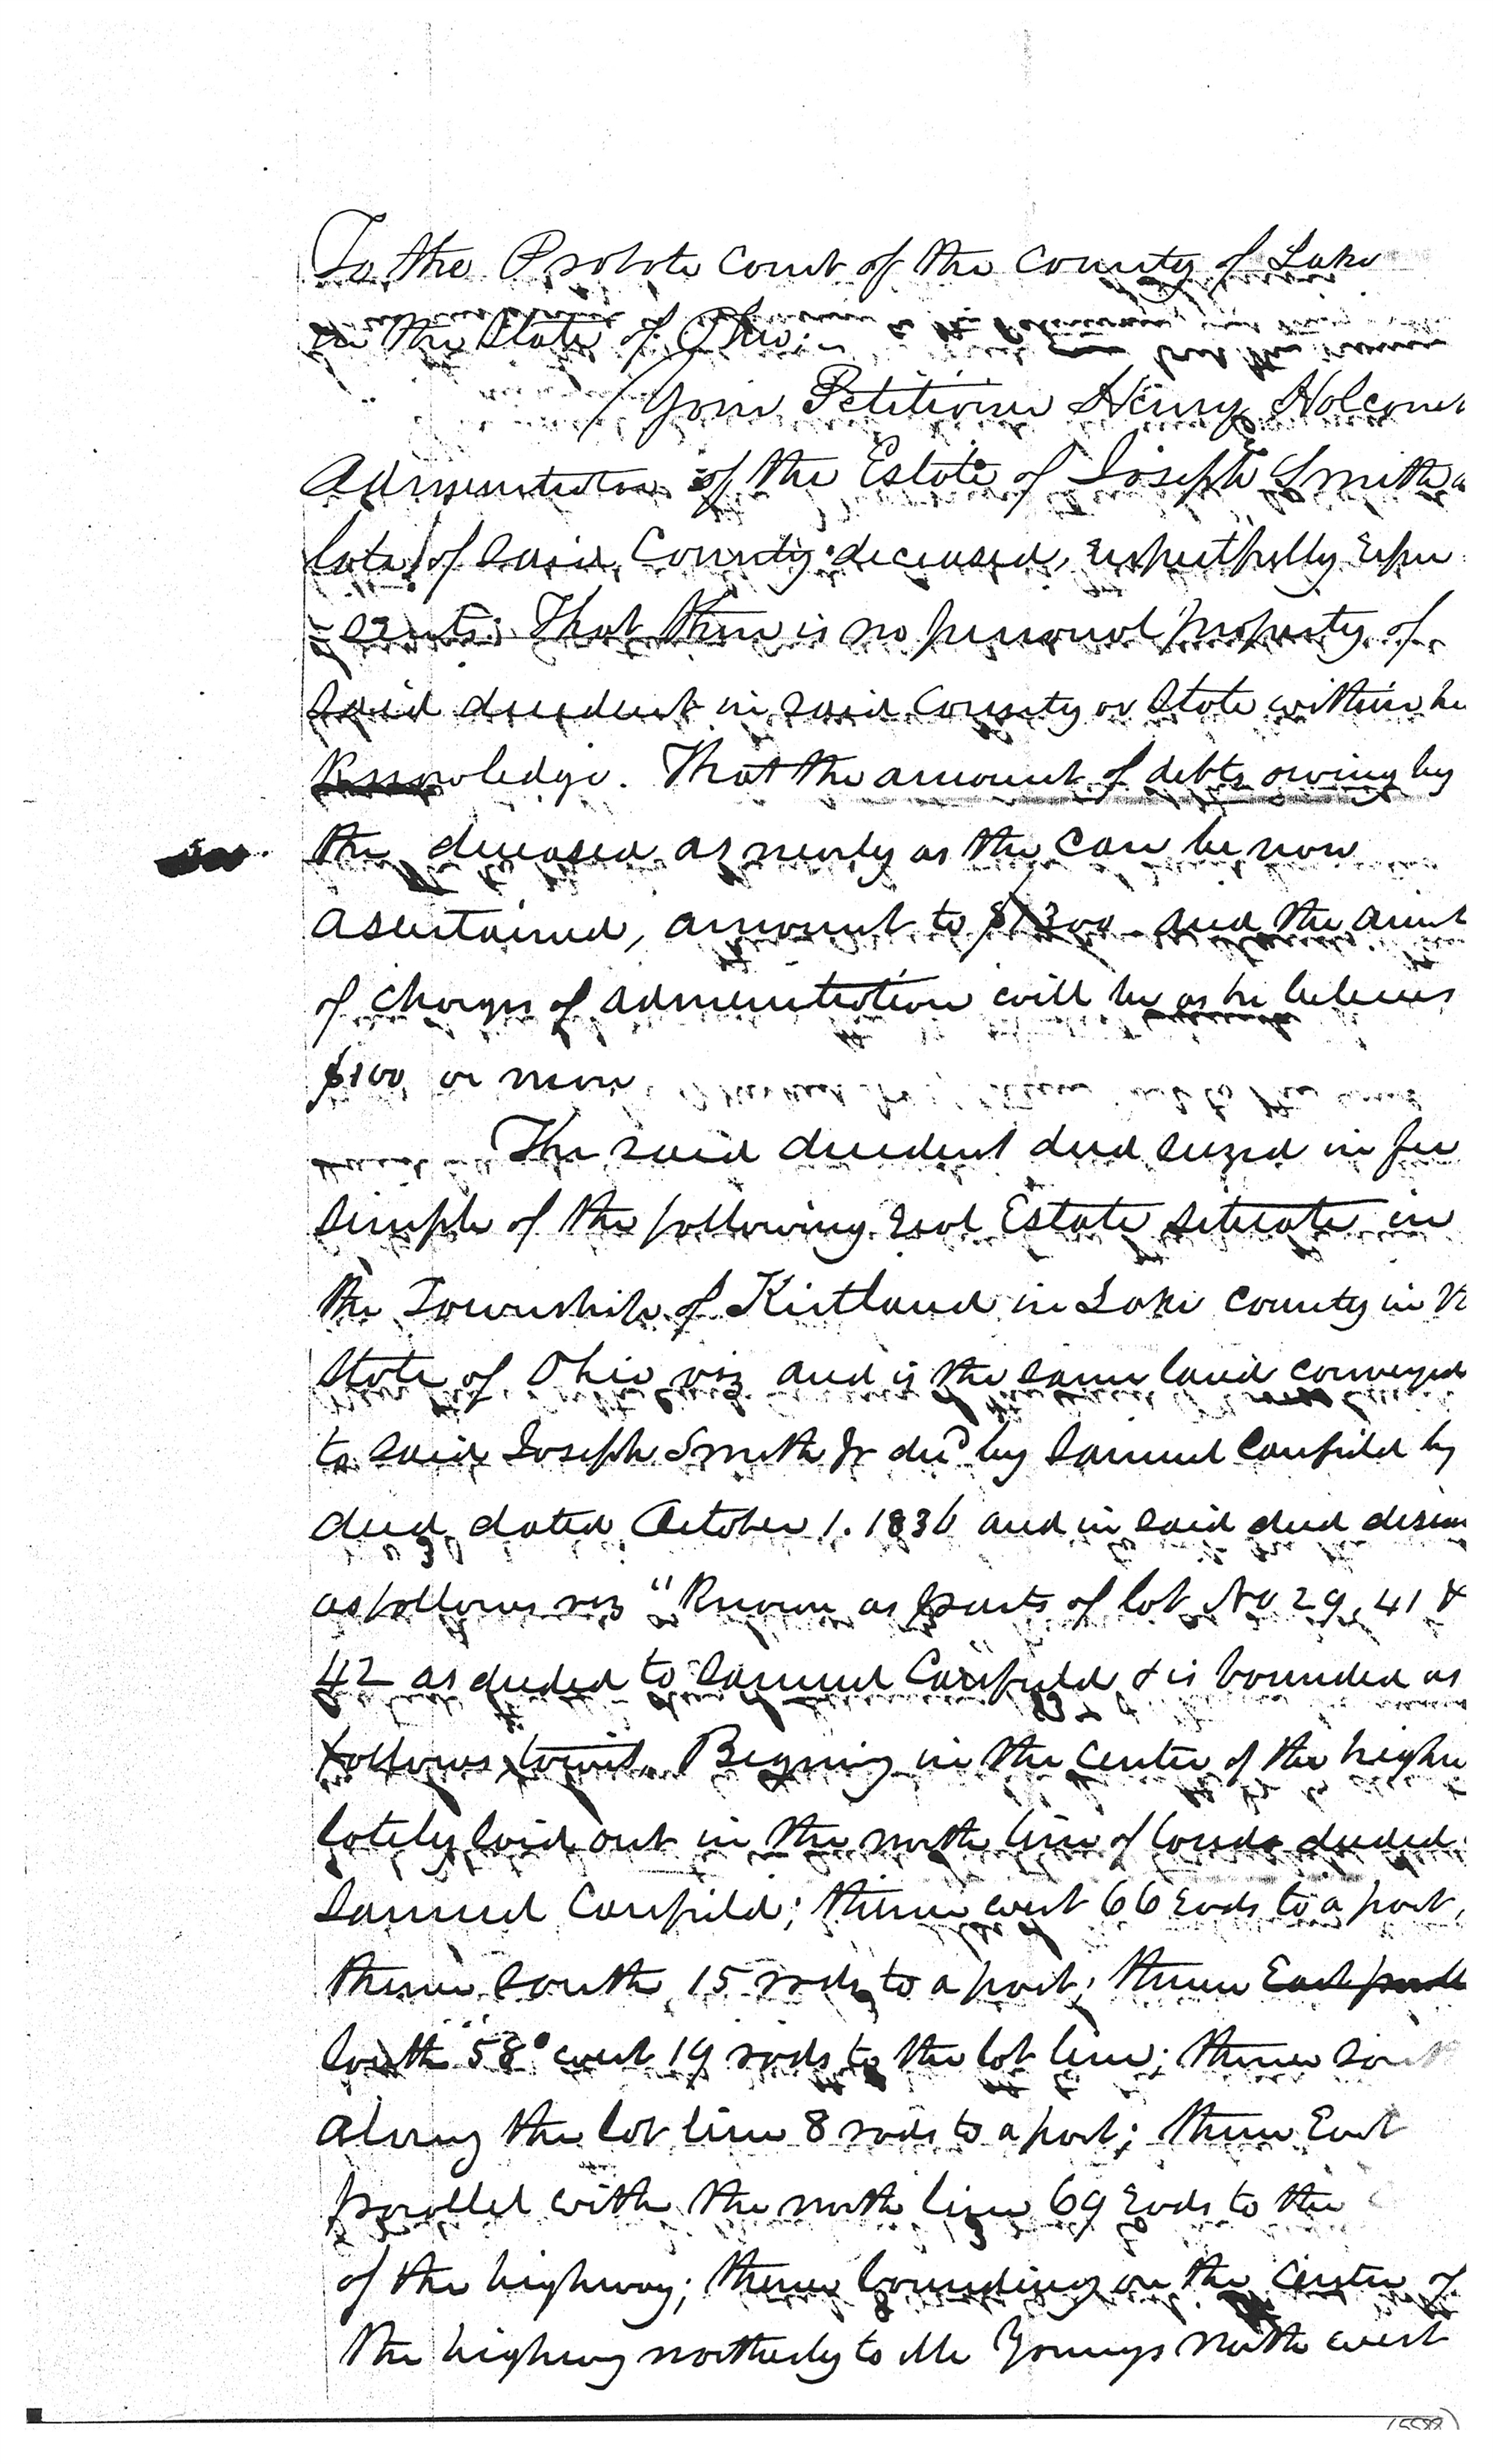 To the Probate Court of the County of Lake
in the State of Ohio:
Your Petitioner Henry Holcomb
Administrator of the Estate of Joseph Smith
late of said County deceased, respectfully repre
-sents: That there is no personal property of
said decedent in said County or State within his
Knowledge. That the amount of debts owing by
the deceased as nearly as the can be now
ascertained, amount to $1300 and the amt
of charges of administration will be as he believes
$100 or more
The said decedent died seized in fee
simple of the following real Estate situate in
the Township of Kirtland in Lake County in
State of Ohio viz and is the same land conveyed
to said Joseph Smith Jr decd by Samuel Canfield by
deed dated October 1. 1836 and in said deed
as follows viz "Known as parts of lot No 29, 41 &
42 as deeded to Samuel Canfield & is bounded as
follows towit. Begining in the center of the
lately laid out in the north line of lands deeded
Samuel Canfield; thence west 66 rods to a post,
thence South 15 rods to a post; thence East
South 58° west 19 rods to the lot line; thence South
along the lot line 8 rods to a post; thence East
parallel with the north line 69 rods to the
of the highway; thence bounding on the center of
the highway northerly to Mr Youngs North west